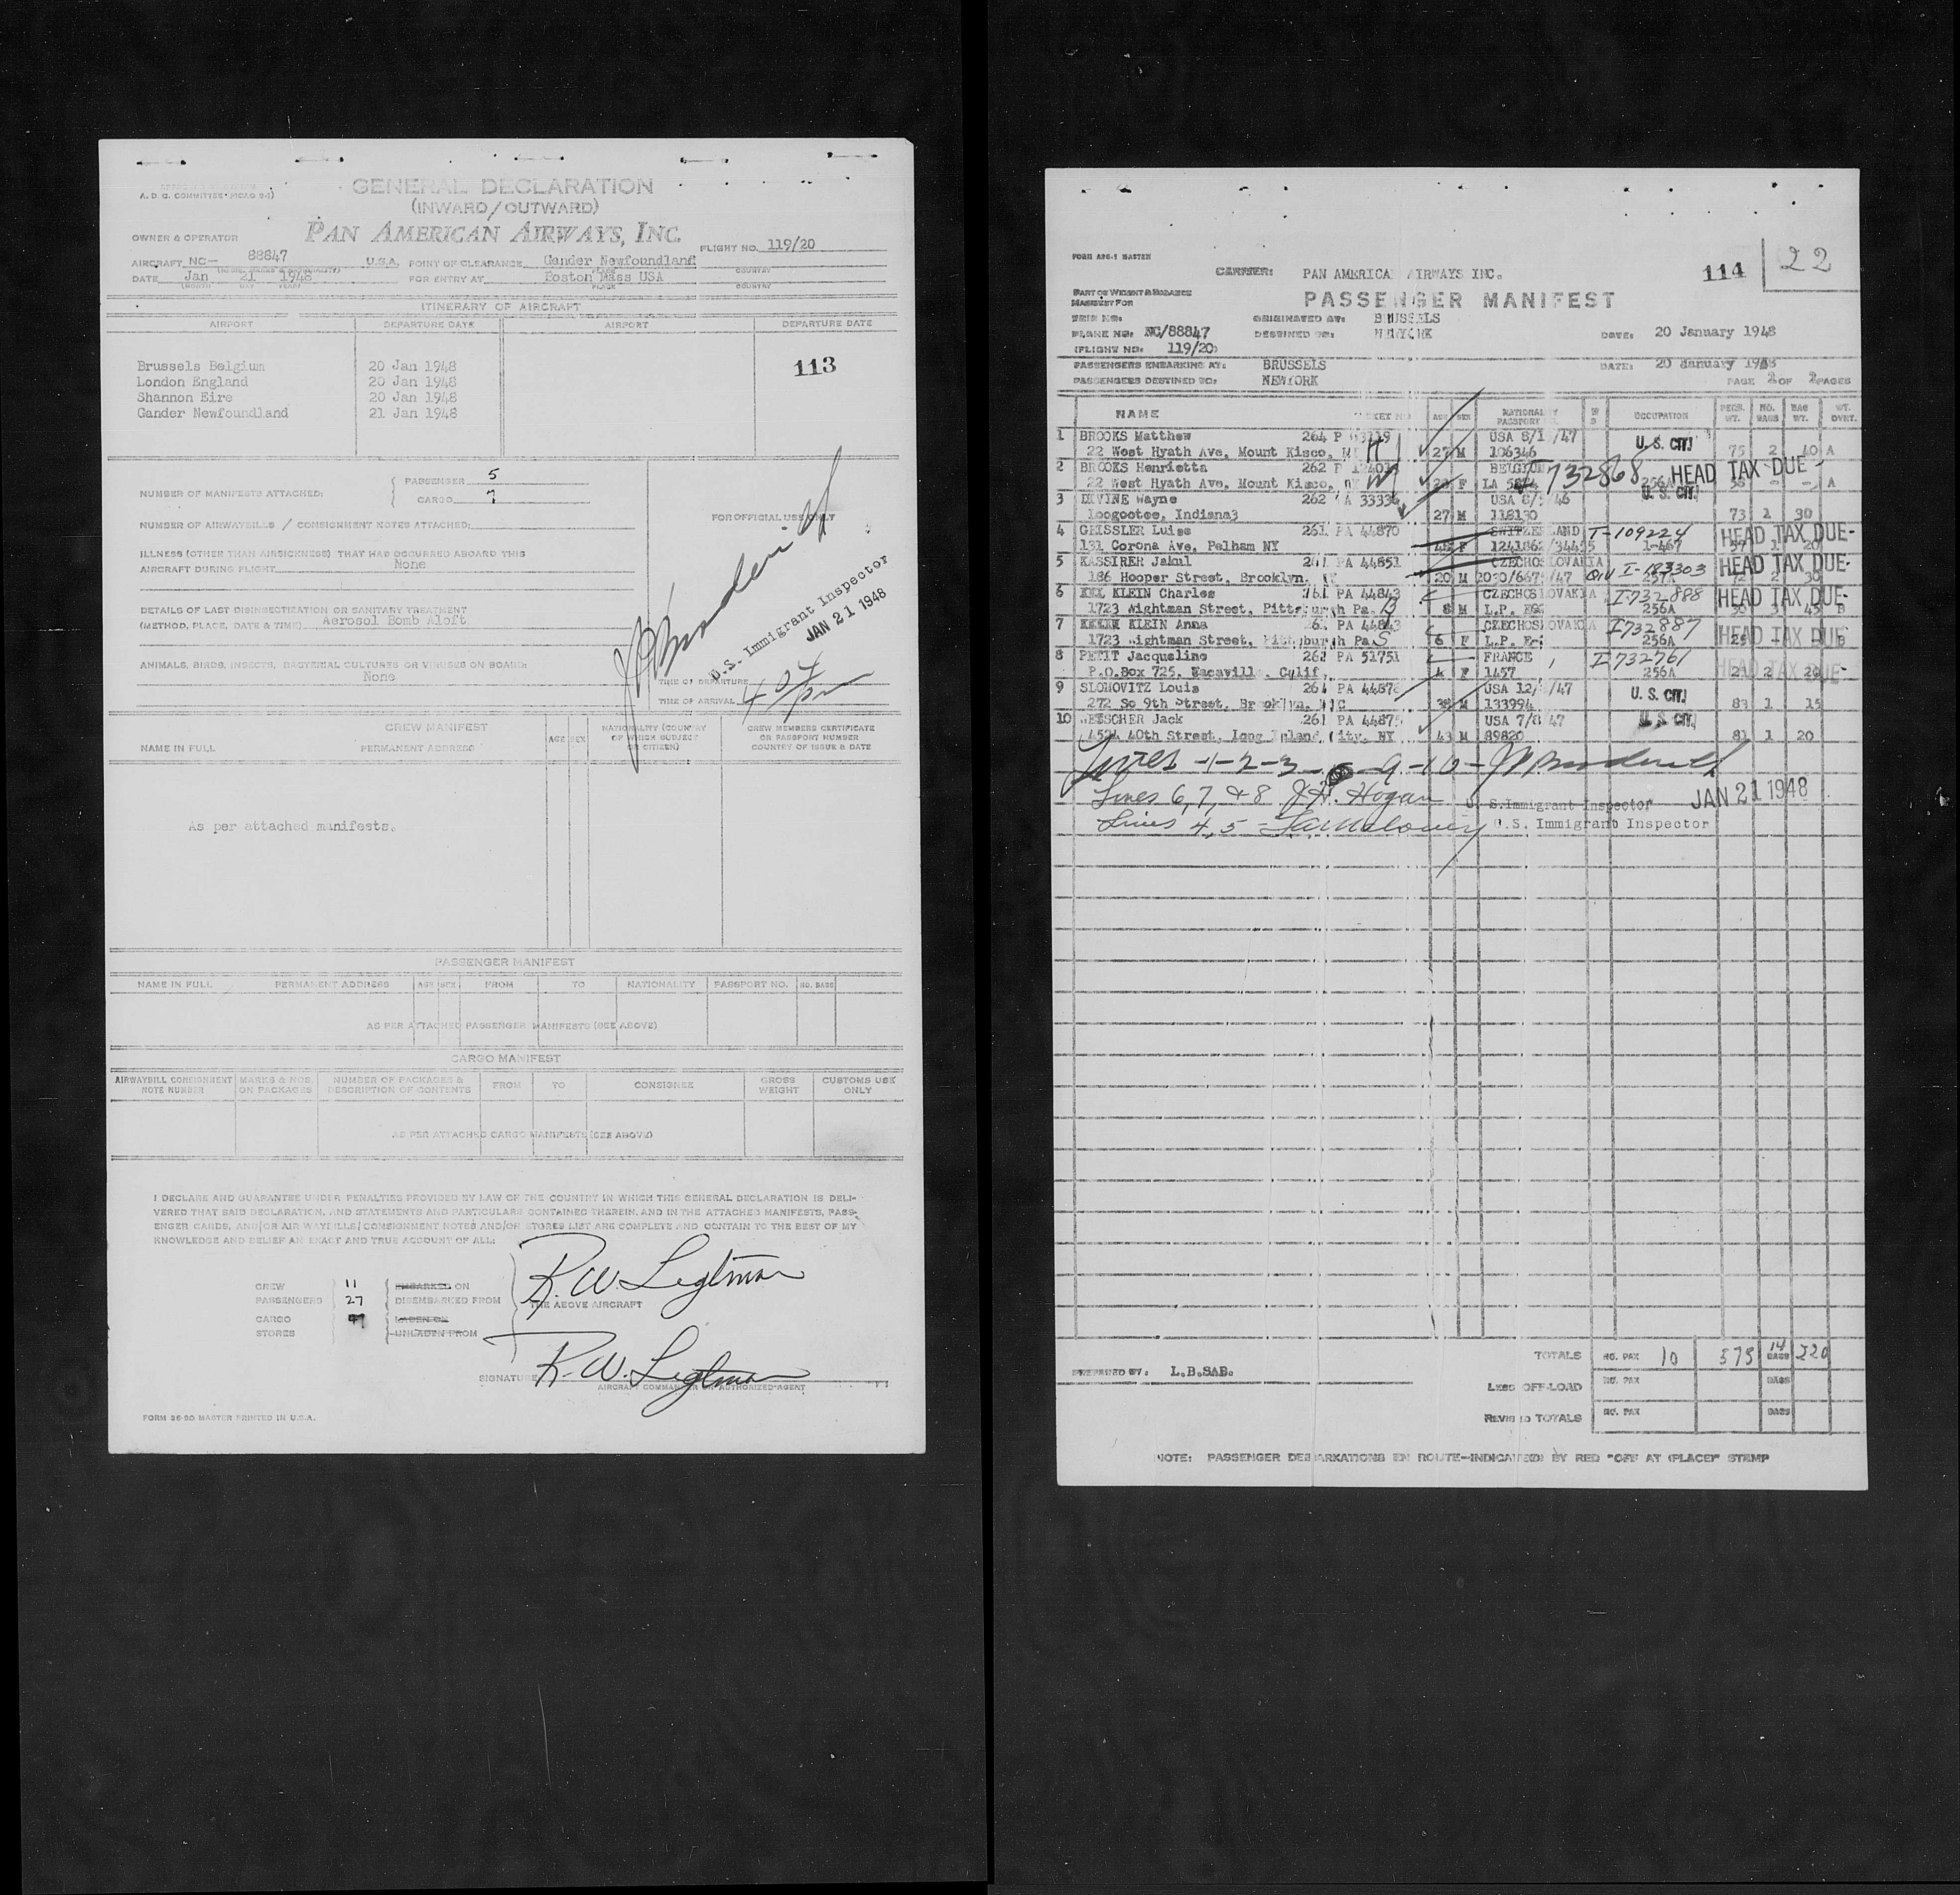 A. D. C. COMMITTEE
GENERAL DECLARATION
(INWARD/OUTWARD)
OWNER & OPERATOR PAN AMERICAN AIRWAYS, INC. FLIGHT NO. 119/20
AIRCRAFT NC- 88847 U.S.A. POINT OF CLEARANCE Gander Newfoundland
PLACE COUNTRY
DATE Jan 21 1948 FOR ENTRY AT Boston Mass USA
(MONTH DAY YEAR) PLACE COUNTRY
ITINERARY OF AIRCRAFT
AIRPORT DEPARTURE DATE AIRPORT DEPARTURE DATE
113
Brussels Belgium 20 Jan 1948
London England 20 Jan 1948
Shannon Eire 20 Jan 1948
Gander Newfoundland 21 Jan 1948
NUMBER OF MANIFESTS ATTACHED: PASSENGER 5
CARGO 7
NUMBER OF AIRWAYBILLS / CONSIGNMENT NOTES ATTACHED:
FOR OFFICIAL USE ONLY
ILLNESS (OTHER THAN AIRSICKNESS) THAT HAS OCCURRED ABOARD THIS
AIRCRAFT DURING FLIGHT None
DETAILS OF LAST DISINSECTIZATION OR SANITARY TREATMENT
(METHOD, PLACE, DATE & TIME) Aerosol Bomb Aloft
U.S. Immigrant Inspector
JAN 21 1948
ANIMALS, BIRDS, INSECTS, BACTERIAL CULTURES OR VIRUSES ON BOARD:
None
TIME OF DEPARTURE
TIME OF ARRIVAL 4 07 pm
CREW MANIFEST
NAME IN FULL PERMANENT ADDRESS AGE SEX NATIONALITY (COUNTRY OF WHICH SUBJECT OR CITIZEN) CREW MEMBERS CERTIFICATE OR PASSPORT NUMBER COUNTRY OF ISSUE & DATE
As per attached manifests.
PASSENGER MANIFEST
NAME IN FULL PERMANENT ADDRESS AGE SEX FROM TO NATIONALITY PASSPORT NO. NO. BAGS
AS PER ATTACHED PASSENGER MANIFESTS (SEE ABOVE)
CARGO MANIFEST
AIRWAYBILL CONSIGNMENT NOTE NUMBER MARKS & NOS. ON PACKAGES NUMBER OF PACKAGES & DESCRIPTION OF CONTENTS FROM TO CONSIGNEE GROSS WEIGHT CUSTOMS USE ONLY
AS PER ATTACHED CARGO MANIFESTS (SEE ABOVE)
I DECLARE AND GUARANTEE UNDER PENALTIES PROVIDED BY LAW OF THE COUNTRY IN WHICH THIS GENERAL DECLARATION IS DELI-
VERED THAT SAID DECLARATION, AND STATEMENTS AND PARTICULARS CONTAINED THEREIN, AND IN THE ATTACHED MANIFESTS, PASS-
ENGER CARDS, AND/OR AIR WAYBILLS/CONSIGNMENT NOTES AND/OR STORES LIST ARE COMPLETE AND CONTAIN TO THE BEST OF MY
KNOWLEDGE AND BELIEF AN EXACT AND TRUE ACCOUNT OF ALL:
CREW 11 EMBARKED ON
PASSENGERS 27 DISEMBARKED FROM THE ABOVE AIRCRAFT
CARGO LADEN ON
STORES UNLADEN FROM
SIGNATURE
AIRCRAFT COMMANDER OR AUTHORIZED AGENT
FORM 36-90 MASTER PRINTED IN U.S.A.
CARRIER: PAN AMERICAN AIRWAYS INC. 114 22
PART OF WEIGHT & BALANCE
MANIFEST FOR
PASSENGER MANIFEST
TRIP NO: ORIGINATED AT: BRUSSELS
PLANE NO: NC/88847 DESTINED TO: NEWYORK DATE: 20 January 1948
(FLIGHT NO: 119/20)
PASSENGERS EMBARKING AT: BRUSSELS DATE: 20 January 1948
PASSENGERS DESTINED TO: NEWYORK PAGE 2 OF 2 PAGES
NAME AGE SEX OCCUPATION NO. BAGS BAG WT.
1 BROOKS Matthew 264 P USA 8/1 /47 U. S. CIT.
22 West Hyath Ave, Mount Kisco, 27 M 106346 75 2 40 A
2 BROOKS Henrietta 262 P BELGIUM 732868 HEAD TAX DUE-
22 West Hyath Ave, Mount Kisco, F LA 256A A
3 DEVINE Wayne 262 A 33334 USA U. S. CIT.
Loogootee, Indiana3 27 M 118130 73 1 30
4 GEISSLER Luise 261 PA 44870 SWITZERLAND T-109224 HEAD TAX DUE-
131 Corona Ave, Pelham NY F 1241862/34455
5 KASSIRER Jakul PA 44851 CZECHOSLOVAKIA I-183303 HEAD TAX DUE-
186 Hooper Street, Brooklyn, 20 M 257A 2 30
6 KLEIN Charles PA 44843 CZECHOSLOVAKIA I-732888 HEAD TAX DUE-
1723 Wightman Street, Pittsburgh Pa. 8 M L.P. 256A 45 B
7 KLEIN Anna PA 44843 CZECHOSLOVAKIA I732887 HEAD TAX DUE
1723 Wightman Street, Pittsburgh Pa 6 F L.P. 256A B
8 PETIT Jacqueline 262 PA 51751 FRANCE I-732761 HEAD TAX DUE-
P.O.Box 725, Vacaville, Calif, F 1457 256A 2
9 SLOMOVITZ Louis 261 PA 4487 USA 12/ /47 U. S. CIT.
272 So 9th Street, Brooklyn, NYC M 133994 83 1 15
10 Jack 261 PA 4487 USA 7/8 47 U. S. CIT.
40th Street, Long Island City, NY 43 M 89820 81 1 20
Lines -1-2-3- 9-10-
Lines 6,7, & 8 J.H. Hogan U. S. Immigrant Inspector JAN 21 1948
Lines 4,5- U.S. Immigrant Inspector
TOTALS NO. PAX 10 575 14 BAGS 220
PREPARED BY: L.B.SAB. LESS OFF-LOAD NO. PAX BAGS
REVISED TOTALS NO. PAX BAGS
NOTE: PASSENGER DEBARKATIONS EN ROUTE-INDICATED BY RED "OFF AT (PLACE)" STAMP